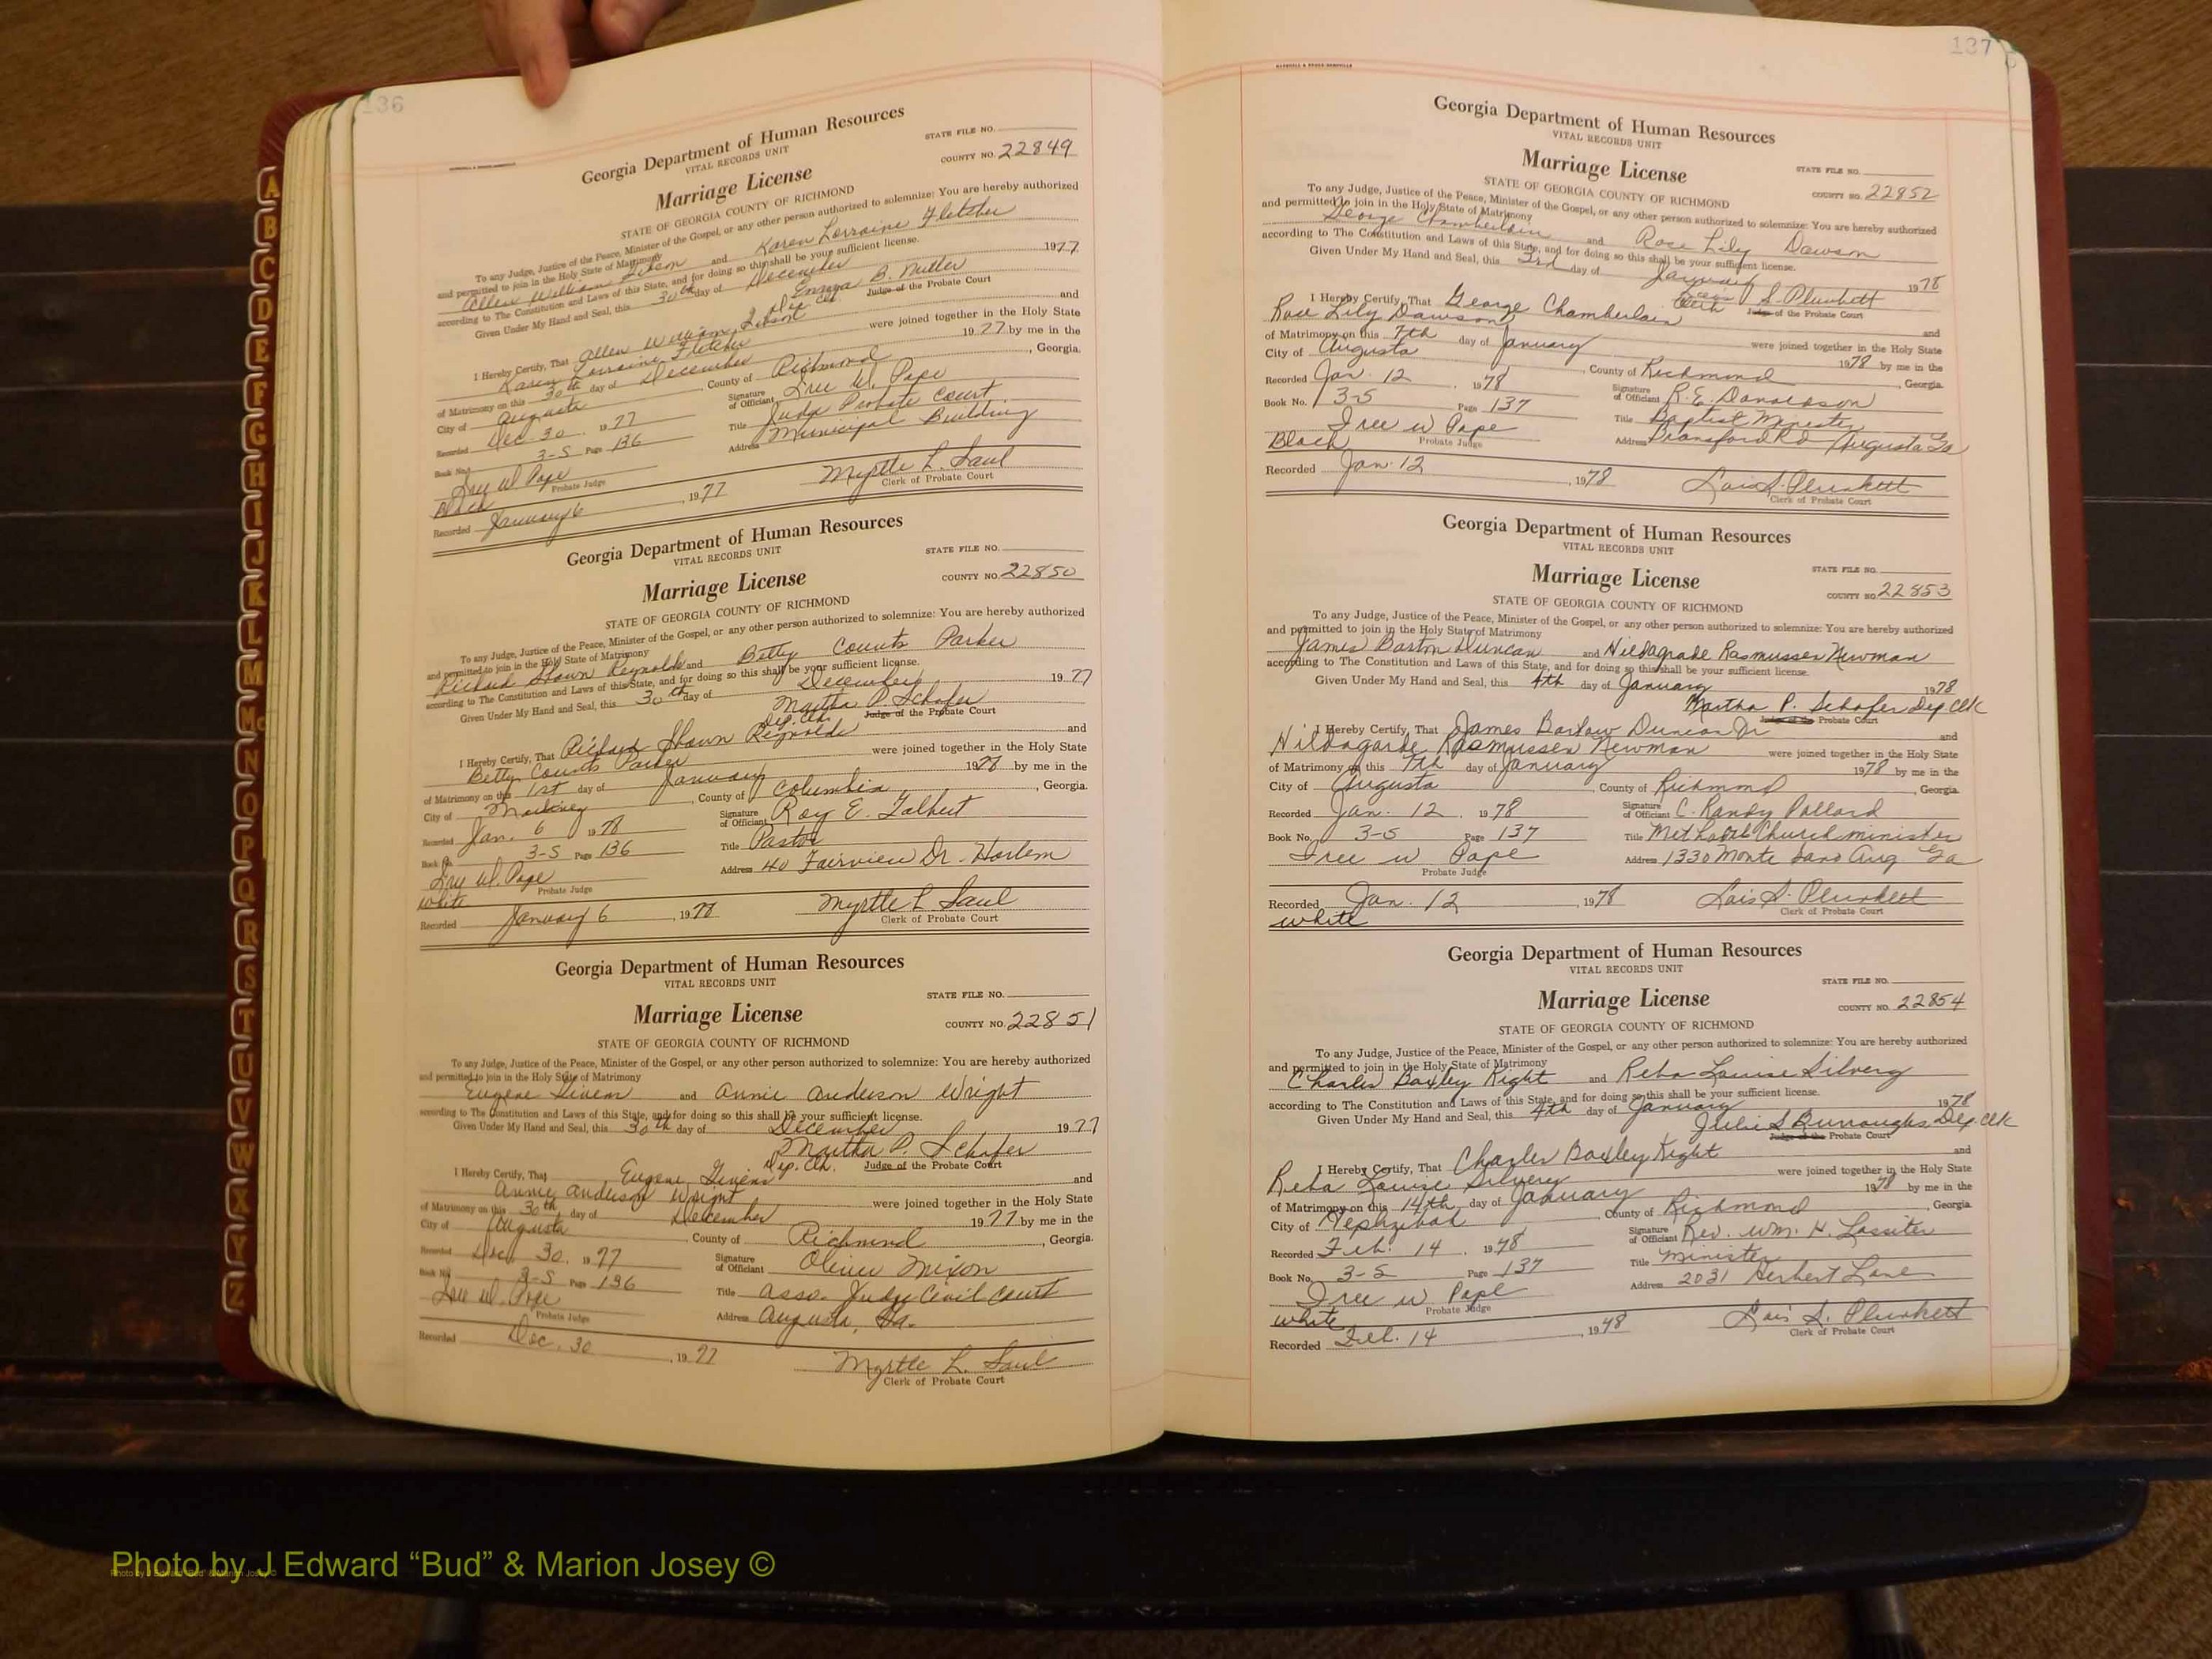 136
Georgia Department of Human Resources
VITAL RECORDS UNIT
STATE FILE NO.
Marriage License
COUNTY NO. 22849
STATE OF GEORGIA COUNTY OF RICHMOND
To any Judge, Justice of the Peace, Minister of the Gospel, or any other person authorized to solemnize: You are hereby authorized
and permitted to join in the Holy State of Matrimony
Allen William and Karen Lorraine Fletcher
according to The Constitution and Laws of this State, and for doing so this shall be your sufficient license.
Given Under My Hand and Seal, this 30th day of December 1977
B.
Dep Clk. Judge of the Probate Court
I Hereby Certify, That Allen William and
Karen Lorraine Fletcher were joined together in the Holy State
of Matrimony on this 30th day of December 1977 by me in the
City of Augusta, County of Richmond, Georgia.
Recorded Dec. 30, 1977 Signature of Officiant W. Pope
Book No. 3-S Page 136 Title Judge Probate Court
W. Pope Address Municipal Building
Probate Judge
Black
Recorded January 6, 1977 Myrtle L. Saul
Clerk of Probate Court
Georgia Department of Human Resources
VITAL RECORDS UNIT
STATE FILE NO.
Marriage License
COUNTY NO. 22850
STATE OF GEORGIA COUNTY OF RICHMOND
To any Judge, Justice of the Peace, Minister of the Gospel, or any other person authorized to solemnize: You are hereby authorized
and permitted to join in the Holy State of Matrimony
Richard Shawn Reynolds and Betty Counts Parker
according to The Constitution and Laws of this State, and for doing so this shall be your sufficient license.
Given Under My Hand and Seal, this 30th day of December 1977
Martha P. Schafer
Dep. Clk. Judge of the Probate Court
I Hereby Certify, That Richard Shawn Reynolds and
Betty Counts Parker were joined together in the Holy State
of Matrimony on this 1st day of January 1978 by me in the
City of, County of Columbia, Georgia.
Recorded Jan. 6 1978 Signature of Officiant Roy E. Talbert
Book No. 3-S Page 136 Title Pastor
W. Pope Address 40 Fairview Dr. Harlem
Probate Judge
white
Recorded January 6, 1978 Myrtle L Saul
Clerk of Probate Court
Georgia Department of Human Resources
VITAL RECORDS UNIT
STATE FILE NO.
Marriage License
COUNTY NO. 22851
STATE OF GEORGIA COUNTY OF RICHMOND
To any Judge, Justice of the Peace, Minister of the Gospel, or any other person authorized to solemnize: You are hereby authorized
and permitted to join in the Holy State of Matrimony
Eugene Givens and Annie Anderson Wright
according to The Constitution and Laws of this State, and for doing so this shall be your sufficient license.
Given Under My Hand and Seal, this 30th day of December 1977
Martha P. Schafer
Dep. Clk. Judge of the Probate Court
I Hereby Certify, That Eugene Givens and
Annie Anderson Wright were joined together in the Holy State
of Matrimony on this 30th day of December 1977 by me in the
City of Augusta, County of Richmond, Georgia.
Recorded Dec. 30, 1977 Signature of Officiant Oliver Mixon
Book No. 3-S Page 136 Title Asso. Judge Civil Court
W. Pope Address Augusta, Ga.
Probate Judge
Recorded Dec. 30, 1977 Myrtle L. Saul
Clerk of Probate Court
137
Georgia Department of Human Resources
VITAL RECORDS UNIT
Marriage License
STATE FILE NO.
STATE OF GEORGIA COUNTY OF RICHMOND
COUNTY NO. 22852
To any Judge, Justice of the Peace, Minister of the Gospel, or any other person authorized to solemnize: You are hereby authorized
and permitted to join in the Holy State of Matrimony
George Chamberlain and Rose Lily Dawson
according to The Constitution and Laws of this State, and for doing so this shall be your sufficient license.
Given Under My Hand and Seal, this 3rd day of January 1978
Lois S. Plunkett
Clerk Judge of the Probate Court
I Hereby Certify, That George Chamberlain and
Rose Lily Dawson were joined together in the Holy State
of Matrimony on this 7th day of January 1978 by me in the
City of Augusta, County of Richmond, Georgia.
Recorded Jan. 12, 1978 Signature of Officiant R.E. Donaldson
Book No. 3-S Page 137 Title Baptist Minister
W Pope Address Bransford Rd Augusta Ga
Black Probate Judge
Recorded Jan. 12, 1978 Lois S. Plunkett
Clerk of Probate Court
Georgia Department of Human Resources
VITAL RECORDS UNIT
Marriage License
STATE FILE NO.
STATE OF GEORGIA COUNTY OF RICHMOND
COUNTY NO. 22853
To any Judge, Justice of the Peace, Minister of the Gospel, or any other person authorized to solemnize: You are hereby authorized
and permitted to join in the Holy State of Matrimony
James Barton Duncan and Hildagrade Rasmussen Newman
according to The Constitution and Laws of this State, and for doing so this shall be your sufficient license.
Given Under My Hand and Seal, this 4th day of January 1978
Martha P. Schafer Dep Clk
Judge of the Probate Court
I Hereby Certify, That James Barlow Duncan Jr and
Hildagarde Rasmussen Newman were joined together in the Holy State
of Matrimony on this 7th day of January 1978 by me in the
City of Augusta, County of Richmond, Georgia.
Recorded Jan. 12, 1978 Signature of Officiant C. Randy Pollard
Book No. 3-S Page 137 Title Church minister
W Pope Address 1330 Monte Sano Aug. Ga
Probate Judge
Recorded Jan. 12, 1978 Lois S. Plunkett
white Clerk of Probate Court
Georgia Department of Human Resources
VITAL RECORDS UNIT
STATE FILE NO.
Marriage License
COUNTY NO. 22854
STATE OF GEORGIA COUNTY OF RICHMOND
To any Judge, Justice of the Peace, Minister of the Gospel, or any other person authorized to solemnize: You are hereby authorized
and permitted to join in the Holy State of Matrimony
Charles Boxley Kight and Reba Louise Silvery
according to The Constitution and Laws of this State, and for doing so this shall be your sufficient license.
Given Under My Hand and Seal, this 4th day of January 1978
Julie S Burroughs, Dep. Clk
Judge of the Probate Court
I Hereby Certify, That Charles Boxley Kight and
Reba Louise Silvery were joined together in the Holy State
of Matrimony on this 14th day of January 1978 by me in the
City of Hephzibah, County of Richmond, Georgia.
Recorded Feb. 14, 1978 Signature of Officiant Rev. Wm. H. Lassiter
Book No. 3-S Page 137 Title Minister
W. Pope Address 2031 Herbert Lane
Probate Judge
white
Recorded Feb. 14, 1948 Lois S. Plunkett
Clerk of Probate Court
A
B
C
D
E
F
G
H
I
J
K
L
M
Mc
N
O
P
Q
R
S
T
U
V
W
X
Y
Z
Photo by J Edward “Bud” & Marion Josey ©
Photo by J Edward “Bud” & Marion Josey ©